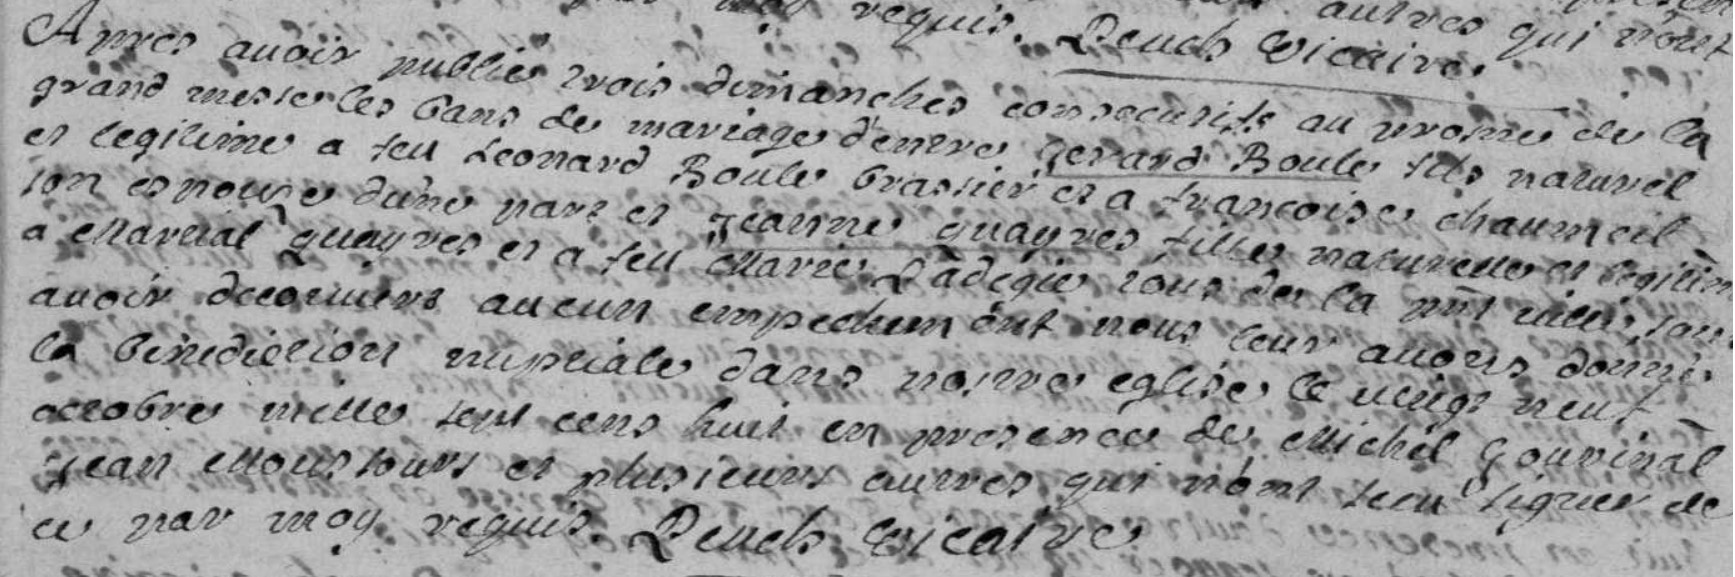 autres qui n'ont
requis. Peuch vicaire
Apres auoir publié trois dimanches consecutifs au prosne de la
grand messe les bans de mariage d'entre Gerard Boule fils naturel
et legitime a feu Leonard Boule brassier et a francoise chaumeil
son espouse d'une part et Jeanne quayres fille naturelle et legitim
a Martial quayres et a feu Marie Ladegie tous de la pnt ville, sans
auoir decouuert aucun empechement nous leur auons donné
la benediction nuptiale dans nostre eglise le uingt neuf
octobre mille sept cens huit en presence de Michel Gouvinal
Jean Moussours et plusieurs autres qui n'ont sceu signer de
ce par moy requis. Peuch vicaire